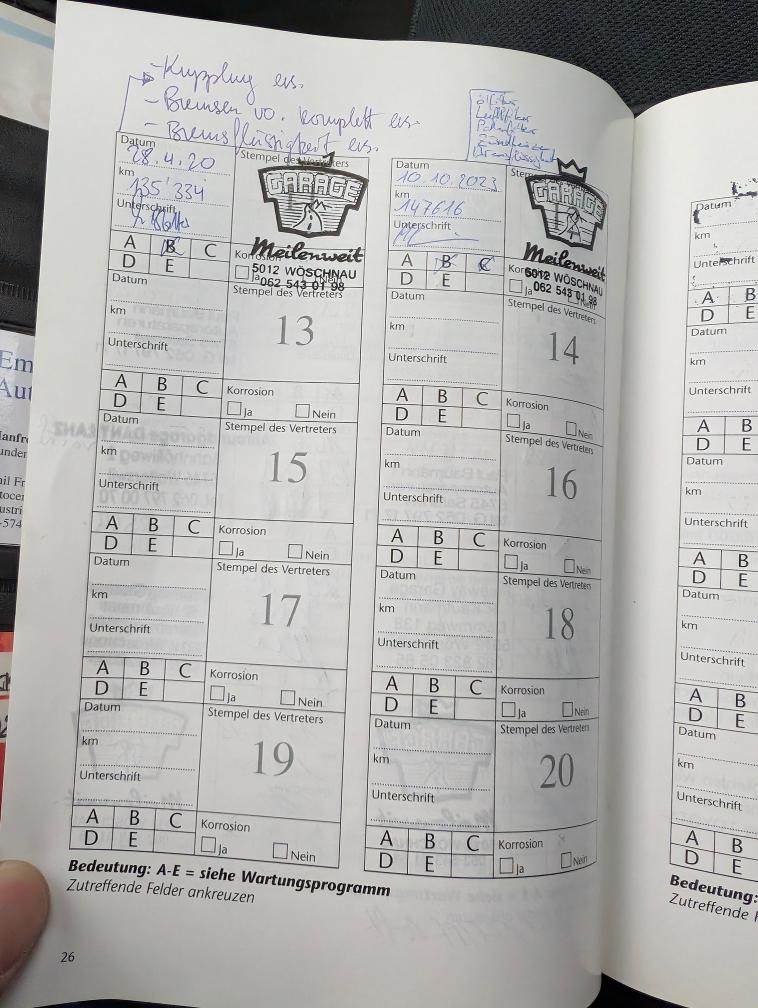 - Kupplung ers.
- Bremsen vo. komplett ers.
- Bremsflüssigkeit ers.
Datum
28.4.20
km
135'334
Unterschrift
Stempel des Vertreters
GARAGE
Meilenweit
5012 WÖSCHNAU
062 543 01 98
A B C
D E
Korrosion
Ja
Ölfilter
Luftfilter
Pollenfilter
Zündkerzen
Bremsflüssigkeit
Datum
10.10.2023
km
147616
Unterschrift
GARAGE
Meilenweit
5012 WÖSCHNAU
062 543 01 98
A B C
D E
Ja
Datum
km
Unterschrift
Stempel des Vertreters
13
A B C
D E
Korrosion
Ja Nein
Datum
km
Unterschrift
Stempel des Vertreters
14
A B C
D E
Korrosion
Ja Nein
Datum
km
Unterschrift
Stempel des Vertreters
15
A B C
D E
Korrosion
Ja Nein
Datum
km
Unterschrift
Stempel des Vertreters
16
A B C
D E
Korrosion
Ja Nein
Datum
km
Unterschrift
Stempel des Vertreters
17
A B C
D E
Korrosion
Ja Nein
Datum
km
Unterschrift
Stempel des Vertreters
18
A B C
D E
Korrosion
Ja Nein
Datum
km
Unterschrift
Stempel des Vertreters
19
A B C
D E
Korrosion
Ja Nein
Datum
km
Unterschrift
Stempel des Vertreters
20
A B C
D E
Korrosion
Ja Nein
Bedeutung: A-E = siehe Wartungsprogramm
Zutreffende Felder ankreuzen
26
Datum
km
Unterschrift
A B
D E
Datum
km
Unterschrift
A B
D E
Datum
km
Unterschrift
A B
D E
Datum
km
Unterschrift
A B
D E
Datum
km
Unterschrift
A B
D E
Bedeutung:
Zutreffende